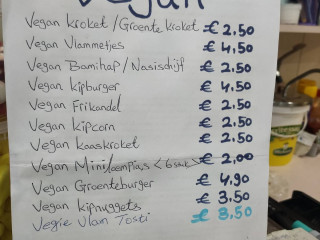 Vegan
Vegan kroket / Groente kroket € 2,50
Vegan Vlammetjes € 4,50
Vegan Bamihap / Nasischijf € 2,50
Vegan kipburger € 4,50
Vegan Frikandel € 2,50
Vegan kipcorn € 2,50
Vegan kaaskroket € 2,50
Vegan Mini loempia's < 6 stuk > € 2,00
Vegan Groenteburger € 4,90
Vegan kipnuggets € 3,50
Vegie Vlam Tosti € 3,50